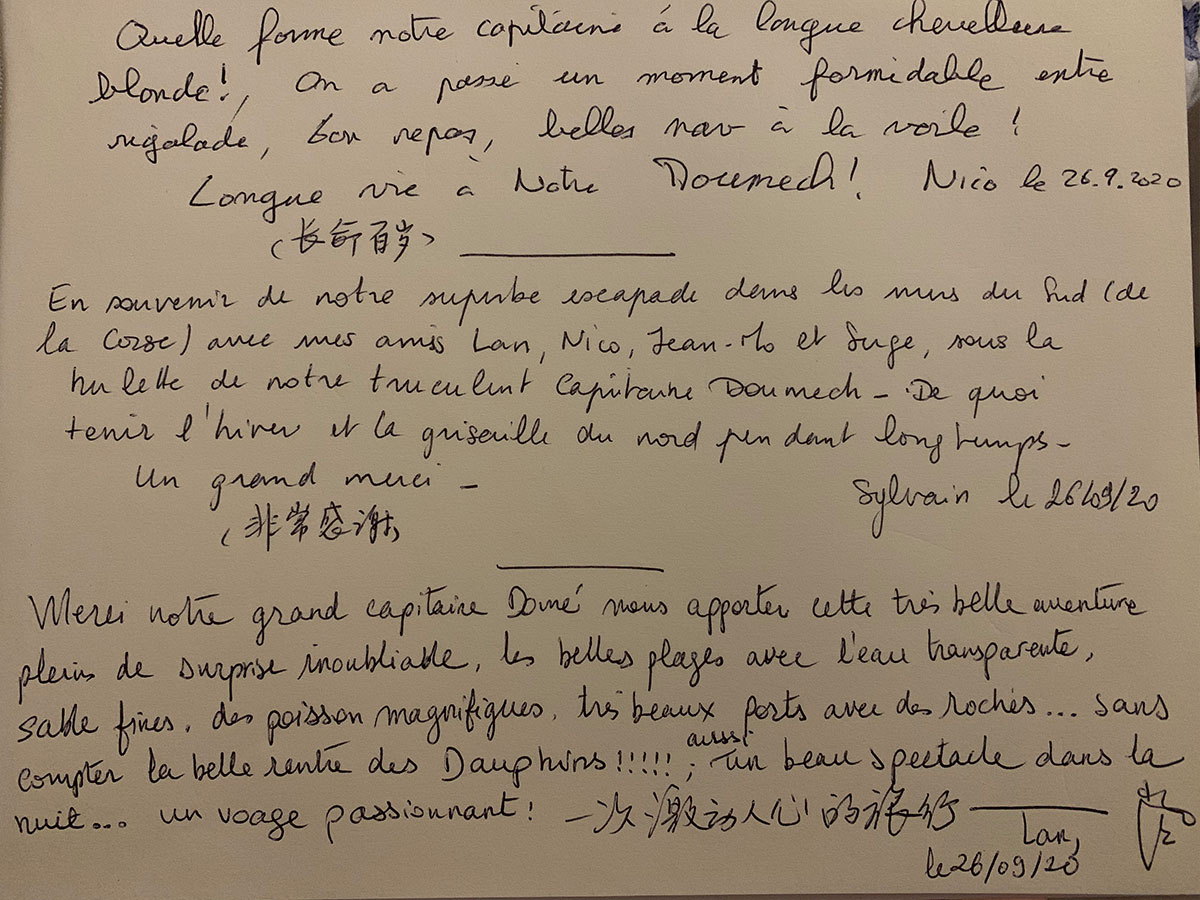 Quelle forme notre capitaine à la longue chevelleure
blonde!, On a passé un moment formidable entre
régalade, bon repas, belles nav à la voile !
Longue vie à Notre Doumech! Nico le 26.9.2020
(长命百岁)
En souvenir de notre superbe escapade dans les mers du Sud (de
la Corse) avec mes amis Lan, Nico, Jean-Mo et Serge, sous la
houlette de notre truculent Capitaine Doumech - De quoi
tenir l'hiver et la grisaille du nord pendant longtemps -
Un grand merci -
Sylvain le 26/09/20
(非常感谢)
Merci notre grand capitaine Domé nous apporter cette très belle aventure
pleins de surprise inoubliable, les belles plages avec l'eau transparente,
sable fines, des poisson magnifiques, très beaux ports avec des rochés... sans
compter la belle rentré des Dauphins !!!!! ; aussi un beau spectacle dans la
nuit... un voage passionnant! 一次激动人心的旅行
Lan,
le 26/09/20